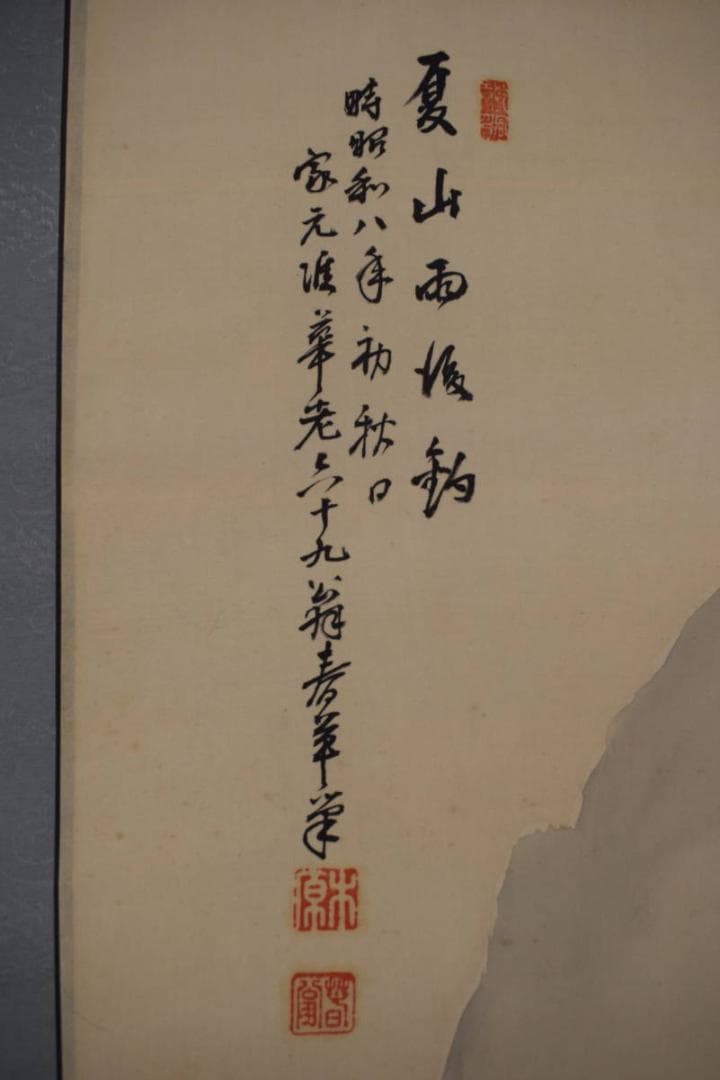 夏山雨後釣
時昭和八年初秋日
家元准華老六十九翁春草筆